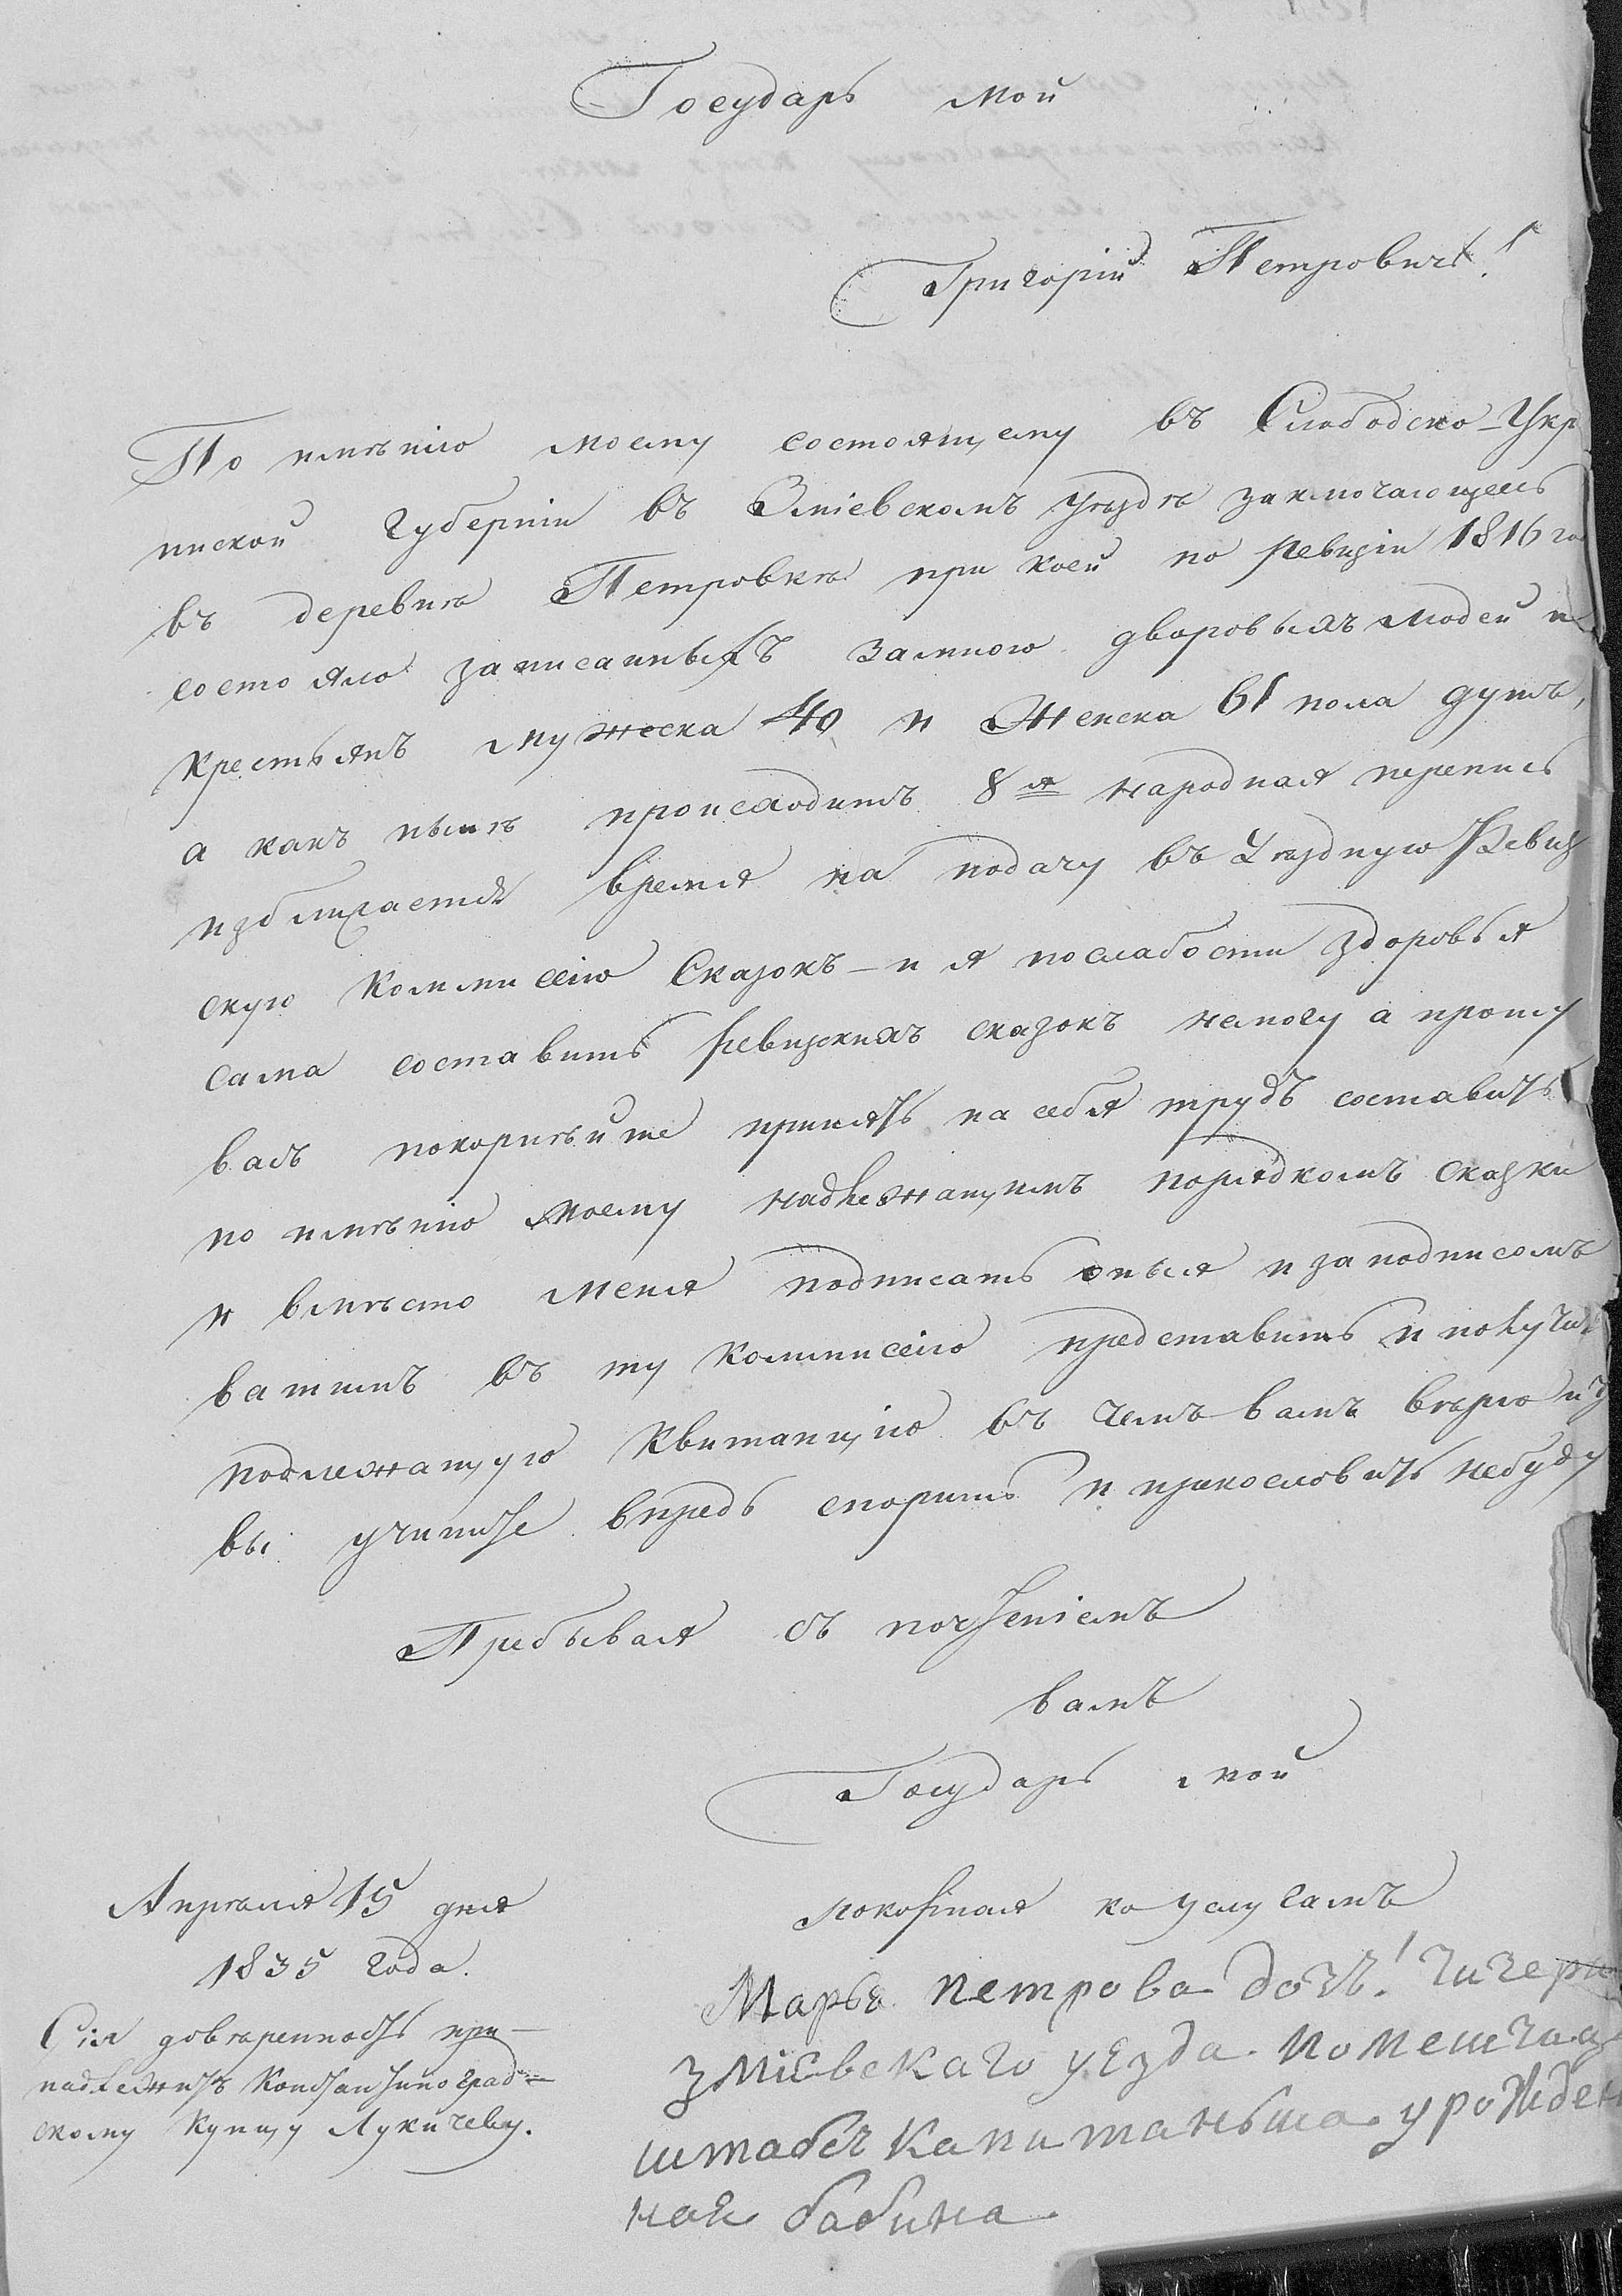 Государь мой
Григорій Петровичь!
По имѣнію моему состоящему въ Слободско-Укр
инской Губерніи въ Зміевскомъ Уѣздѣ заключающемсь
въ деревнѣ Петровкѣ при коей по Ревизіи 1816 го
состояло записанныхъ замною дворовыхъ людей и
крестьянъ мужеска 40 и Женска 61 пола душъ,
а какъ нынѣ происходитъ 8я народная перепись
изближается время на подачу въ Уѣздную Ревиз
скую Коммисію Сказокъ - и я послабости здоровья
сама составить Ревизскихъ сказокъ немогу а прошу
васъ покорнѣйше принять на себя трудъ составить
по имѣнію моему надлежащимъ порядкомъ сказки
и вмѣсто меня подписать оныя и заподписомъ
вашимъ въ ту Коммисію представить и получить
подлежащую Квитанцію въ чемъ вамъ вѣрю и чт
вы учините впредь спорить и прекословить небуду
Пребывая съ почтеніемъ
вамъ
Государь мой
покорная ко услугамъ
Марья петрова дочь! Чичери
зміевскаго уезда помешчица
штабсъ капитанша урожден
ная бабина
Апрѣля 15 дня
1835 года.
Сія довѣренность при-
надлежитъ Константиноград-
скому Купцу Лукичеву.